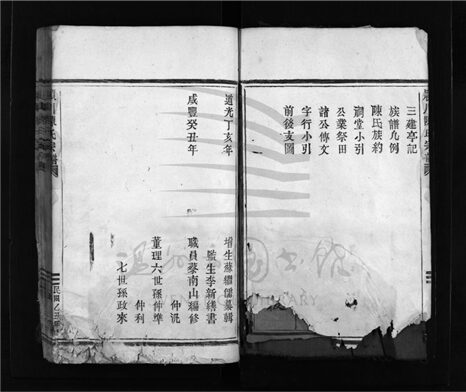 三建亭記
族譜凡例
陳氏族約
祠堂小引
公業祭田
諸公傳文
字行小引
前後支圖
道光丁亥年
增生蘇繼儒纂輯
監生李新繕書
咸豐癸丑年
職員蔡南山編修
仲汎
董理六世孫仲準
仲利
七世孫政來
LIBRARY